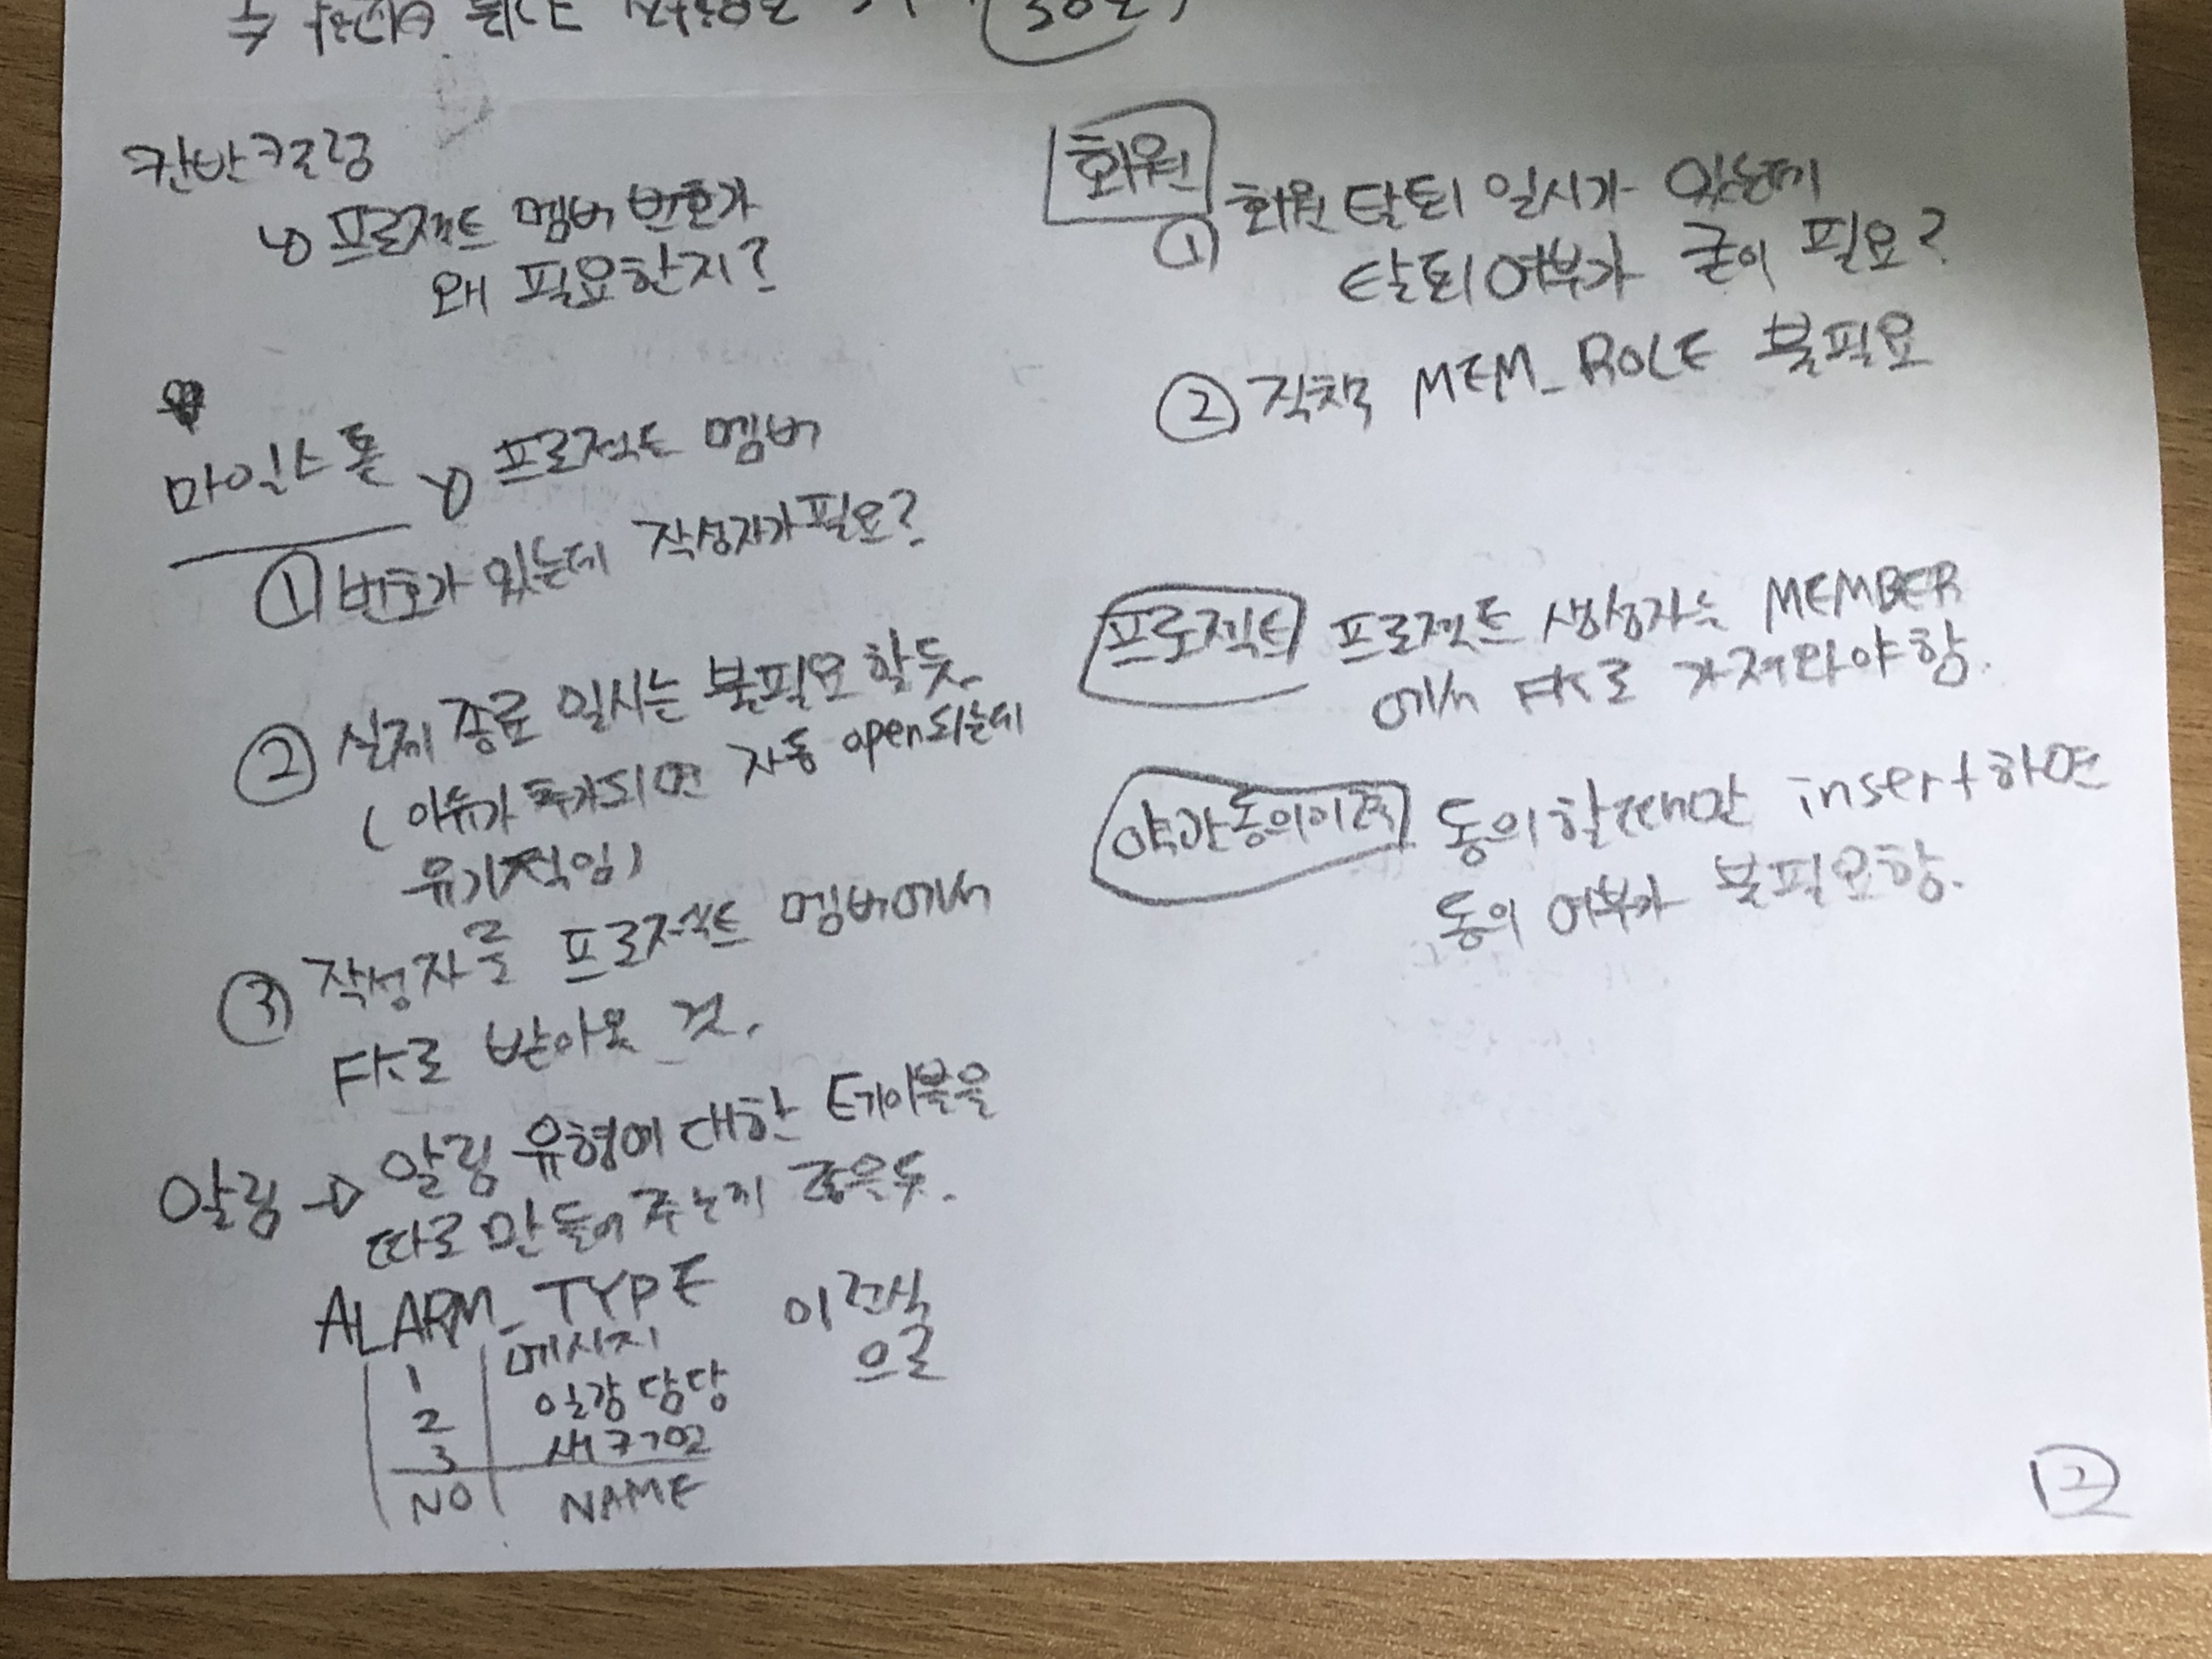 칸반컬럼
프로젝트 멤버 번호가
왜 필요한지?
마일스톤
프로젝트 멤버
① 번호가 있는데 작성자가 필요?
② 실제 종료 일시는 불필요 할듯.
(이슈가 추가되면 자동 open되는데
유기적임)
③ 작성자를 프로젝트 멤버에서
FK로 받아올 것.
알림 → 알림 유형에 대한 테이블을
따로 만들어 주는게 좋은듯.
ALARM_TYPE
1 메시지
2 일감 담당
3
NO NAME
이런식
으로
회원
① 회원 탈퇴 일시가 있는데
탈퇴여부가 굳이 필요?
② 직책 MEM_ROLE 불필요
프로젝트 프로젝트 생성자는 MEMBER
에서 FK로 가져와야함.
약관동의이력 동의할때만 insert하면
동의 여부가 불필요함.
②